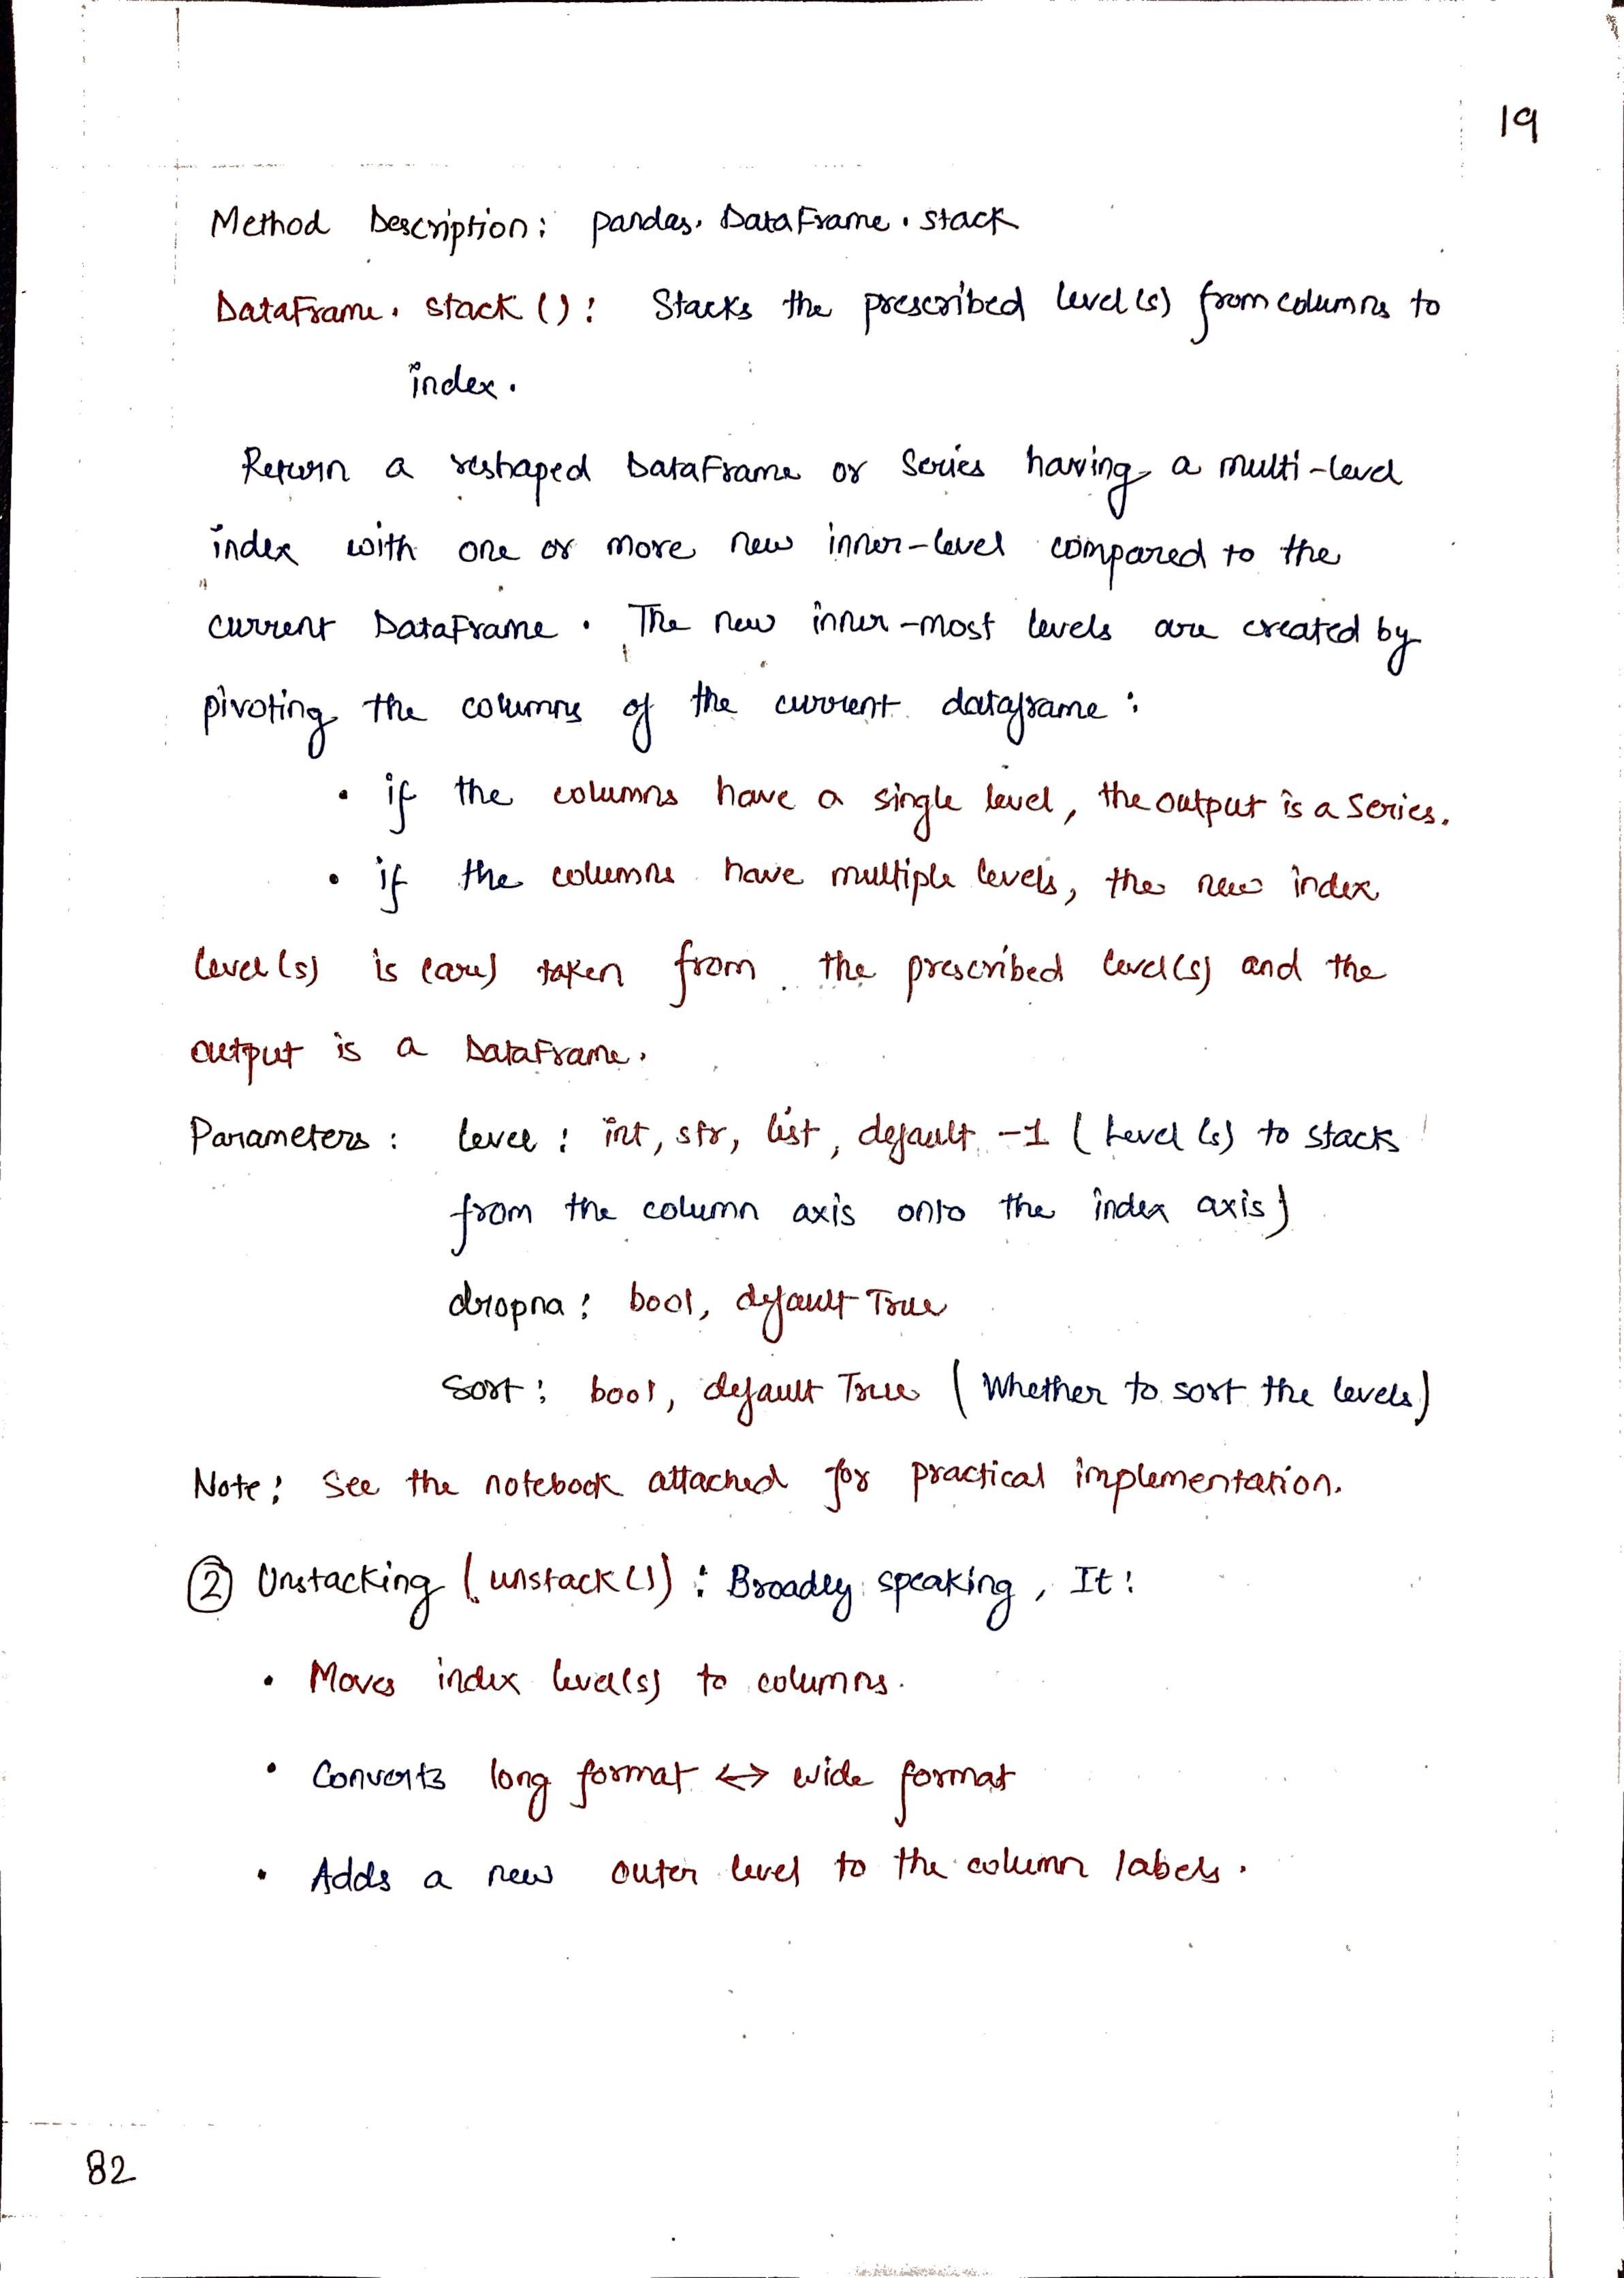 19
Method Description: pandas.DataFrame.stack
DataFrame.stack(): Stacks the prescribed level(s) from columns to
index.
Return a reshaped DataFrame or Series having a multi-level
index with one or more new inner-level compared to the
current DataFrame. The new inner-most levels are created by
pivoting the columns of the current dataframe:
• if the columns have a single level, the output is a Series.
• if the columns have multiple levels, the new index
level(s) is (are) taken from the prescribed level(s) and the
output is a DataFrame.
Parameters: level: int, str, list, default -1 (Level(s) to stack
from the column axis onto the index axis)
dropna: bool, default True
Sort: bool, default True (Whether to sort the levels)
Note: See the notebook attached for practical implementation.
② Unstacking (unstack()): Broadly speaking, It:
• Moves index level(s) to columns.
• Converts long format ↔ wide format
• Adds a new outer level to the column labels.
82